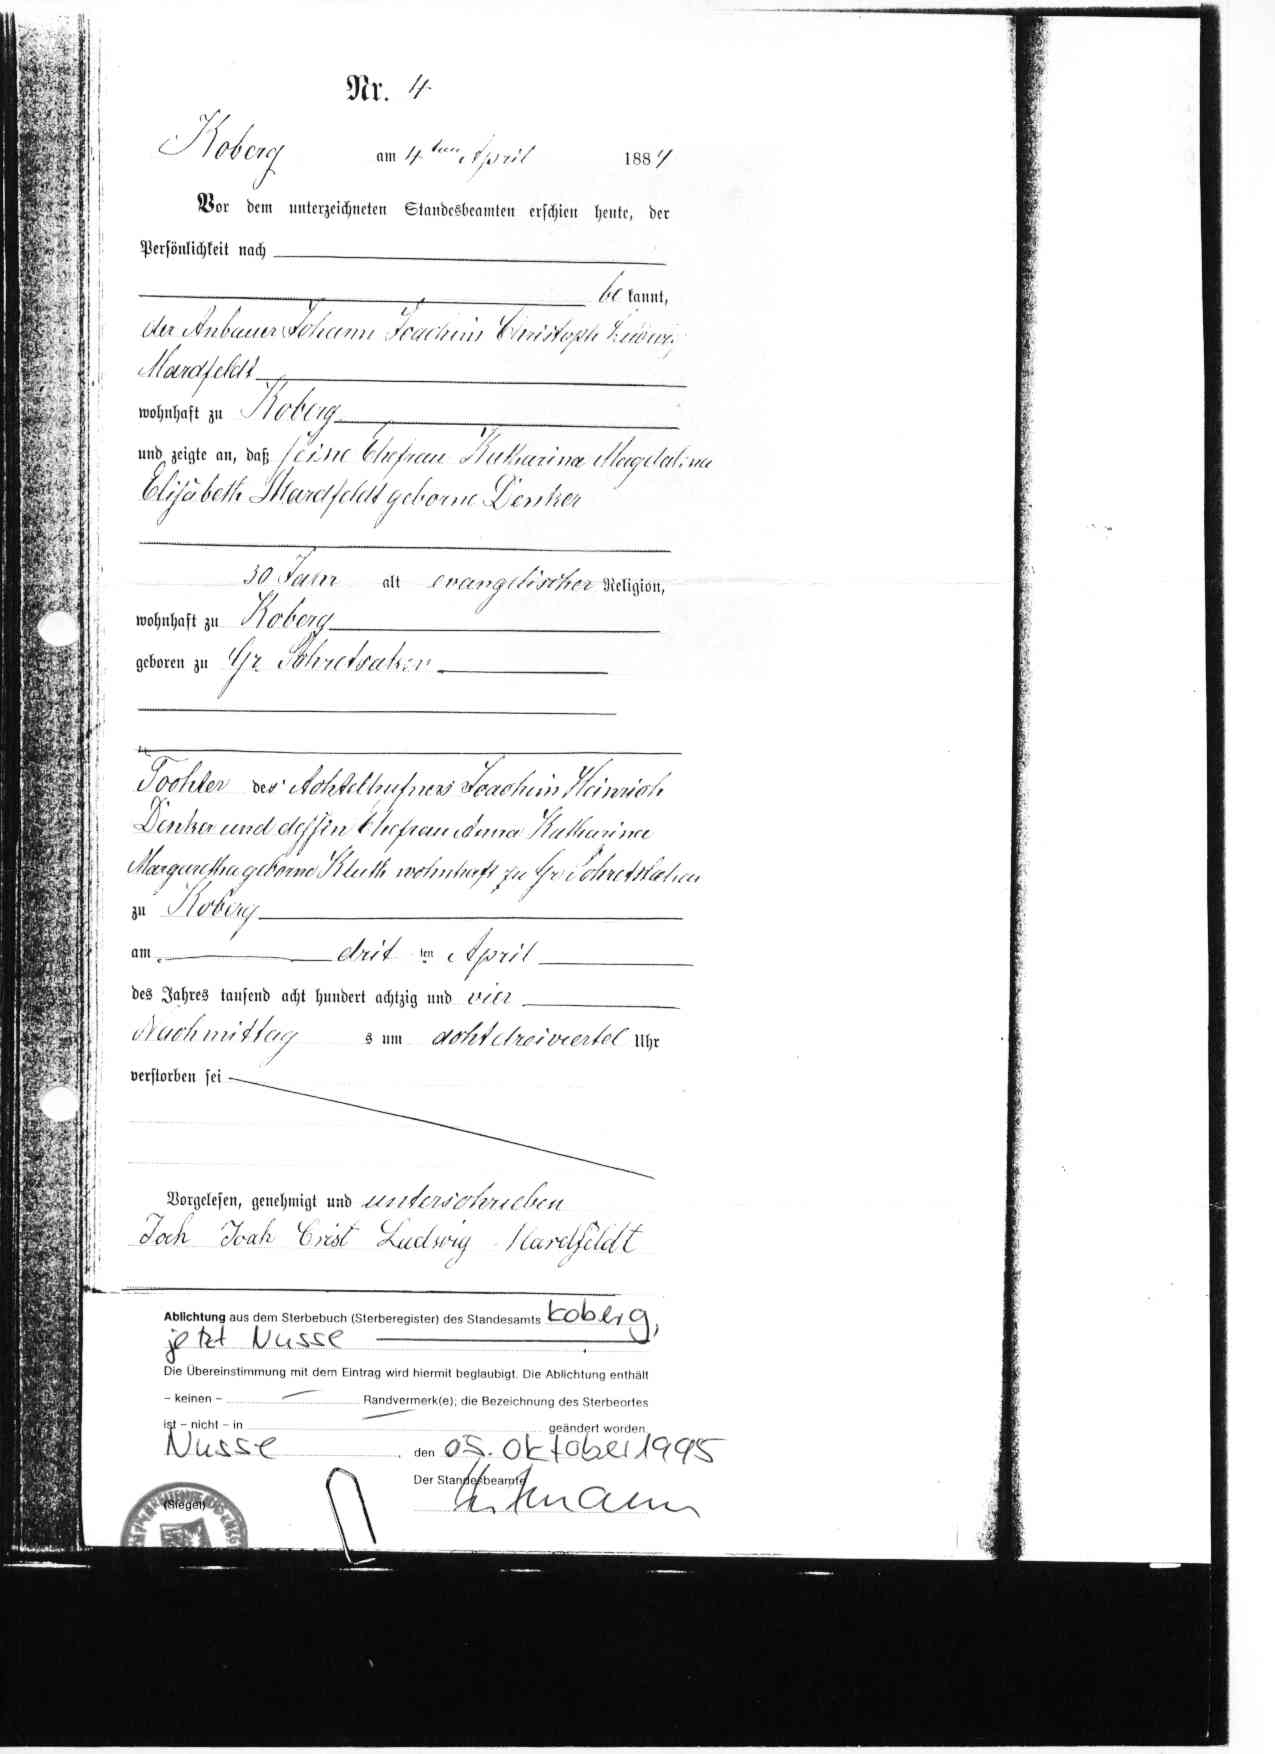 Nr. 4.
Koberg am 4ten April 1884
Vor dem unterzeichneten Standesbeamten erschien heute, der
Persönlichkeit nach
be kannt,
der Anbauer Johann Joachim Christoph Ludwig
Mardfeldt
wohnhaft zu Koberg
und zeigte an, daß seine Ehefrau Katharina Magdalina
Elisabeth Mardfeldt geborne Denker
30 Jahr alt evangelischer Religion,
wohnhaft zu Koberg
geboren zu Gr Schretstaken
Tochter des Achtelhufners Joachim Heinrich
Denker und dessen Ehefrau Anna Katharina
Margaretha geborne Kluth wohnhaft zu Gr Schretstaken
zu Koberg
am drit ten April
des Jahres tausend acht hundert achtzig und vier
Nachmittag s um acht dreiviertel Uhr
verstorben sei
Vorgelesen, genehmigt und unterschrieben
Joh Joah Crist Ludswig Mardfeldt
Ablichtung aus dem Sterbebuch (Sterberegister) des Standesamts Koberg,
jetzt Nusse
Die Übereinstimmung mit dem Eintrag wird hiermit beglaubigt. Die Ablichtung enthält
– keinen – Randvermerk(e); die Bezeichnung des Sterbeortes
ist – nicht – in geändert worden.
Nusse, den 05. Oktober 1995
Der Standesbeamte
(Siegel)